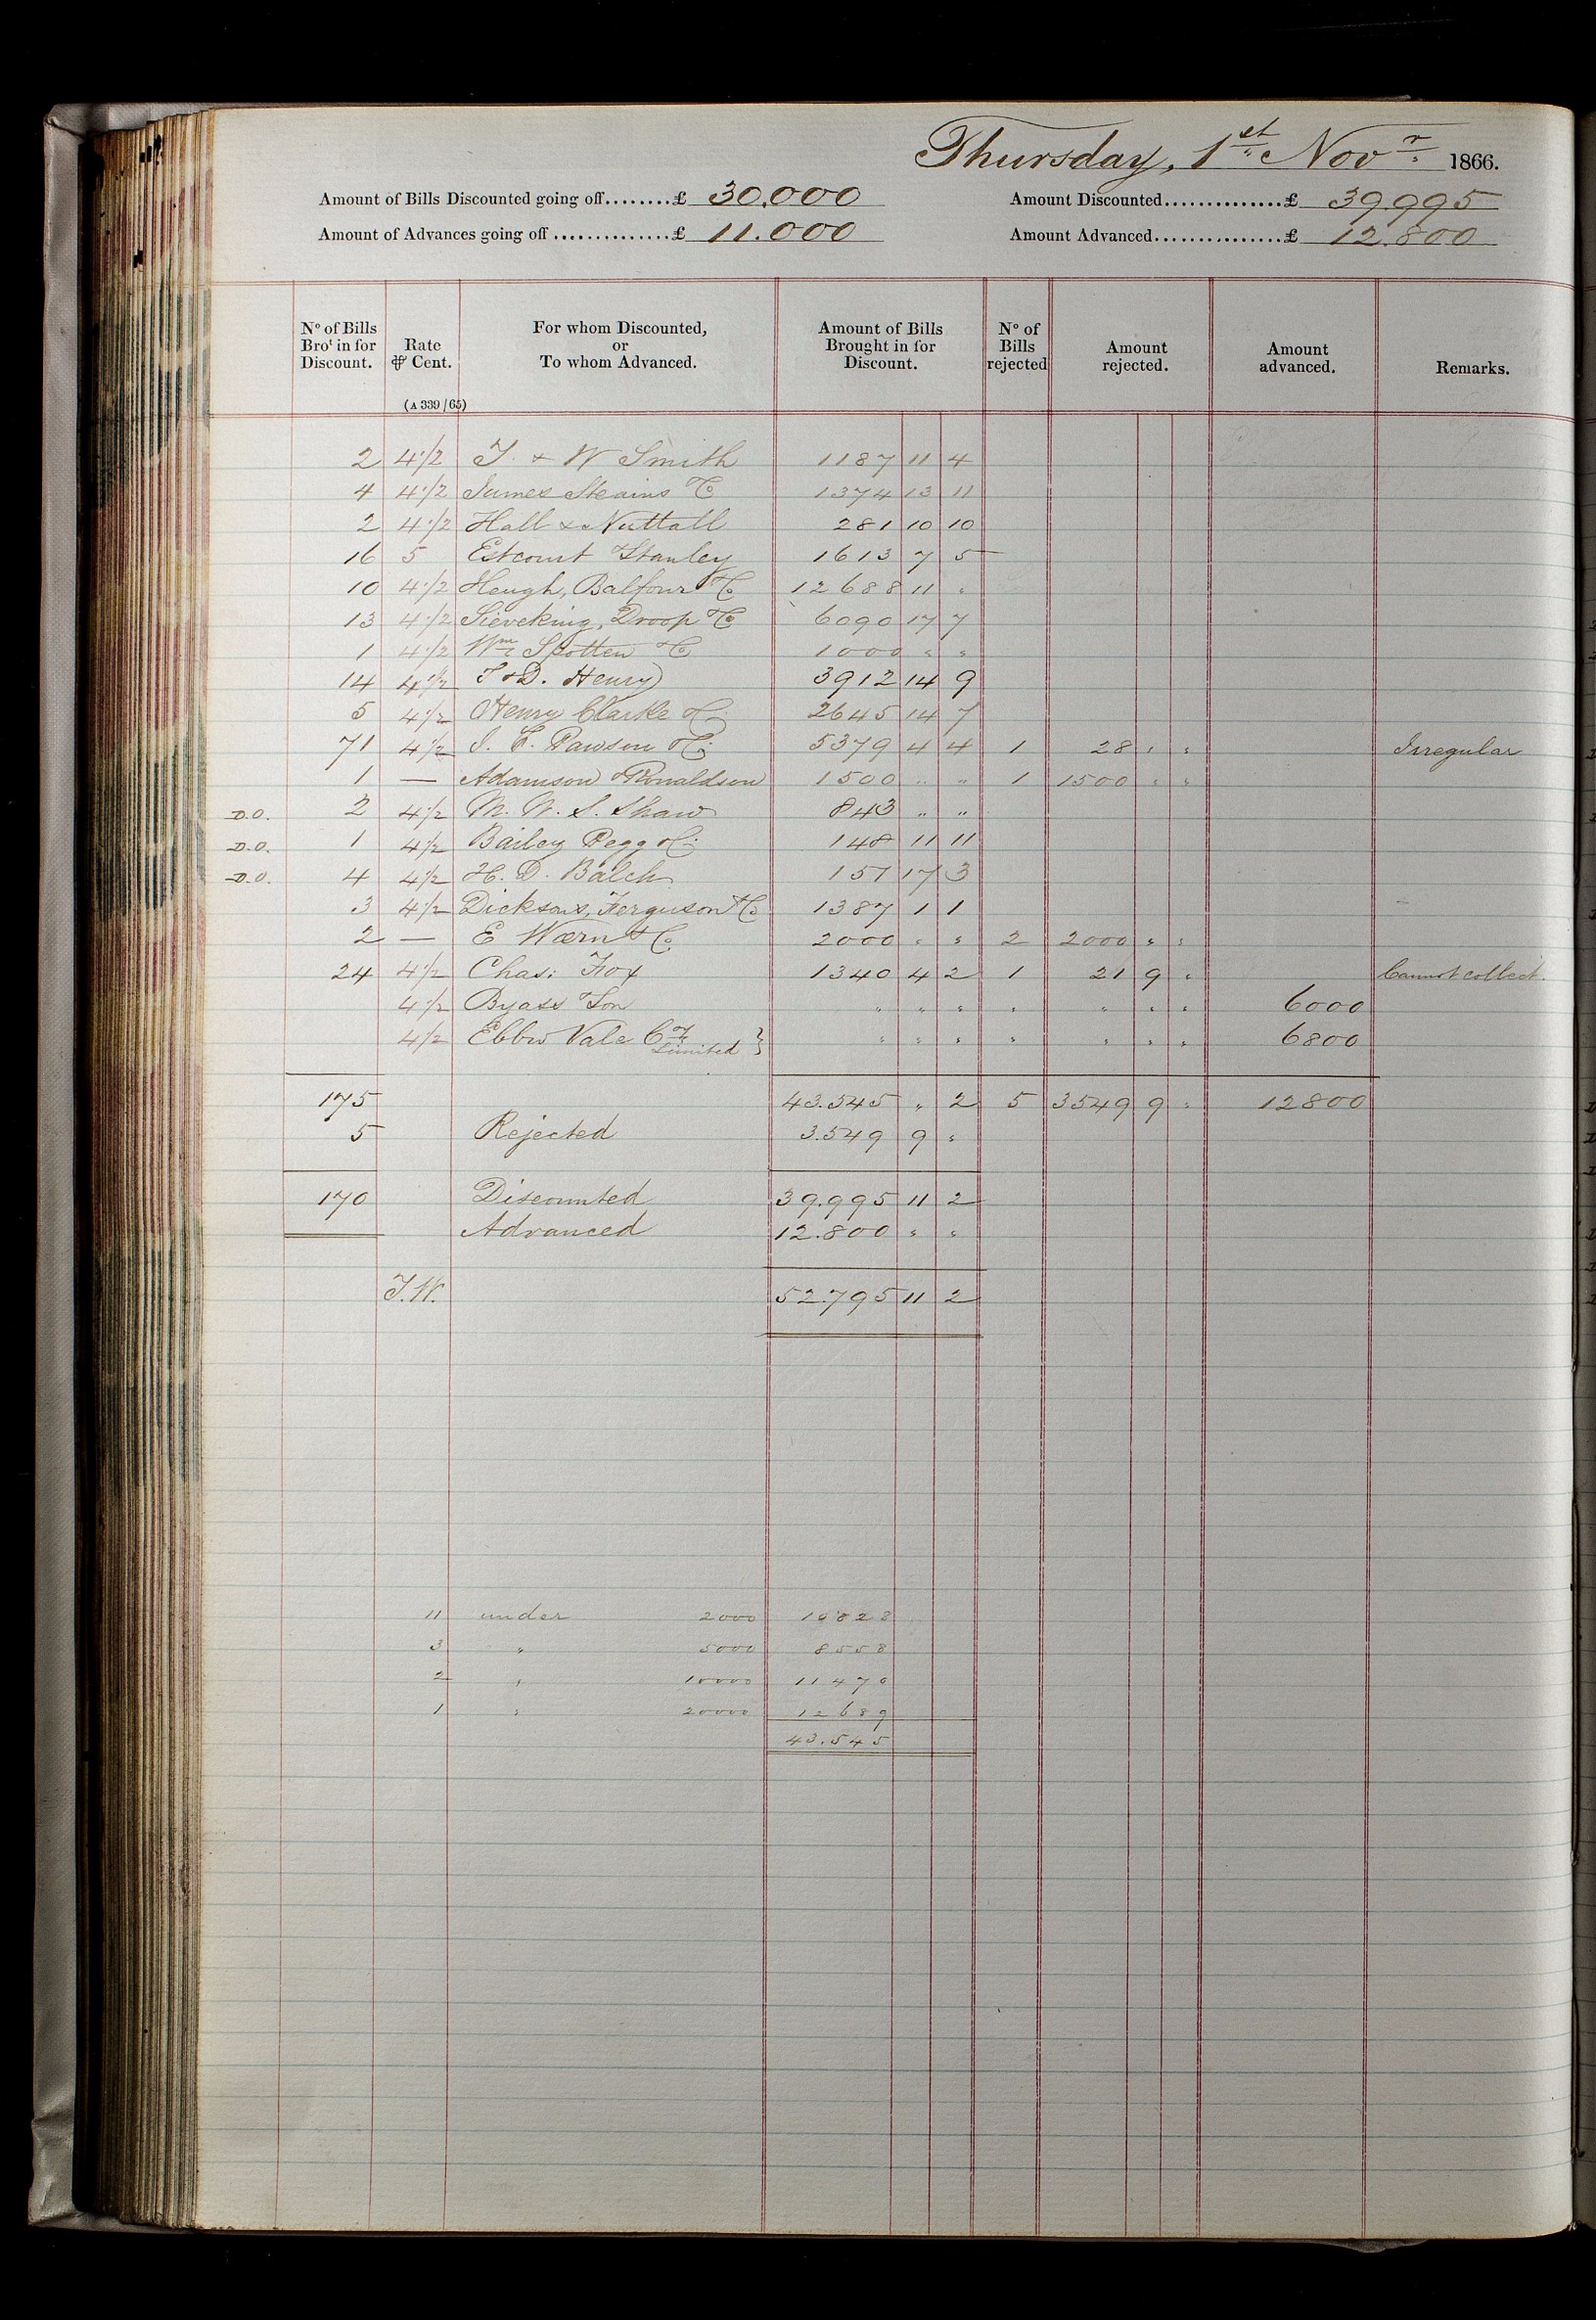 Thursday, 1st Novr 1866.
Amount of Bills Discounted going off........£ 30.000 Amount Discounted..............£ 39.995
Amount of Advances going off ..............£ 11.000 Amount Advanced...............£ 12.800
No of Bills Brot in for Discount. Rate ⅌ Cent. (A 339/65) For whom Discounted, or To whom Advanced. Amount of Bills Brought in for Discount. No of Bills rejected Amount rejected. Amount advanced. Remarks.
2 4½ T. & W Smith 1187 11 4
4 4½ James Steains & Co 1374 13 11
2 4½ Hall & Nuttall 281 10 10
16 5 Estcourt Stanley 1613 7 5
10 4½ Heugh, Balfour & Co 12688 11 "
13 4½ Sieveking, Droop & Co 6090 17 7
1 4½ Wm Spotten & Co 1000 " "
14 4½ T & D. Henry 3912 14 9
5 4½ Henry Clarke & Co 2645 14 7
71 4½ J. F. Pawson & Co 5379 4 4 1 28 " " Irregular
1 — Adamson & Ronaldson 1500 " " 1 1500 " "
D.O. 2 4½ M. W. S. Shaw 843 " "
D.O. 1 4½ Bailey Pegg & Co 148 11 11
D.O. 4 4½ H. D. Balch 151 17 3
3 4½ Dicksons, Ferguson & Co 1387 1 1
2 — E Wærn & Co 2000 " " 2 2000 " "
24 4½ Chas: Fox 1340 4 2 1 21 9 " Cannot collect.
4½ Byass & Son " " " " " " " 6000
4½ Ebbw Vale Coy Limited } " " " " " " " 6800
175 43.545 " 2 5 3549 9 " 12800
5 Rejected 3.549 9 "
170 Discounted 39.995 11 2
Advanced 12.800 " "
T.W. 52.795 11 2
11 under 2000 10828
3 " 5000 8558
2 " 10000 11470
1 " 20000 12689
43.545